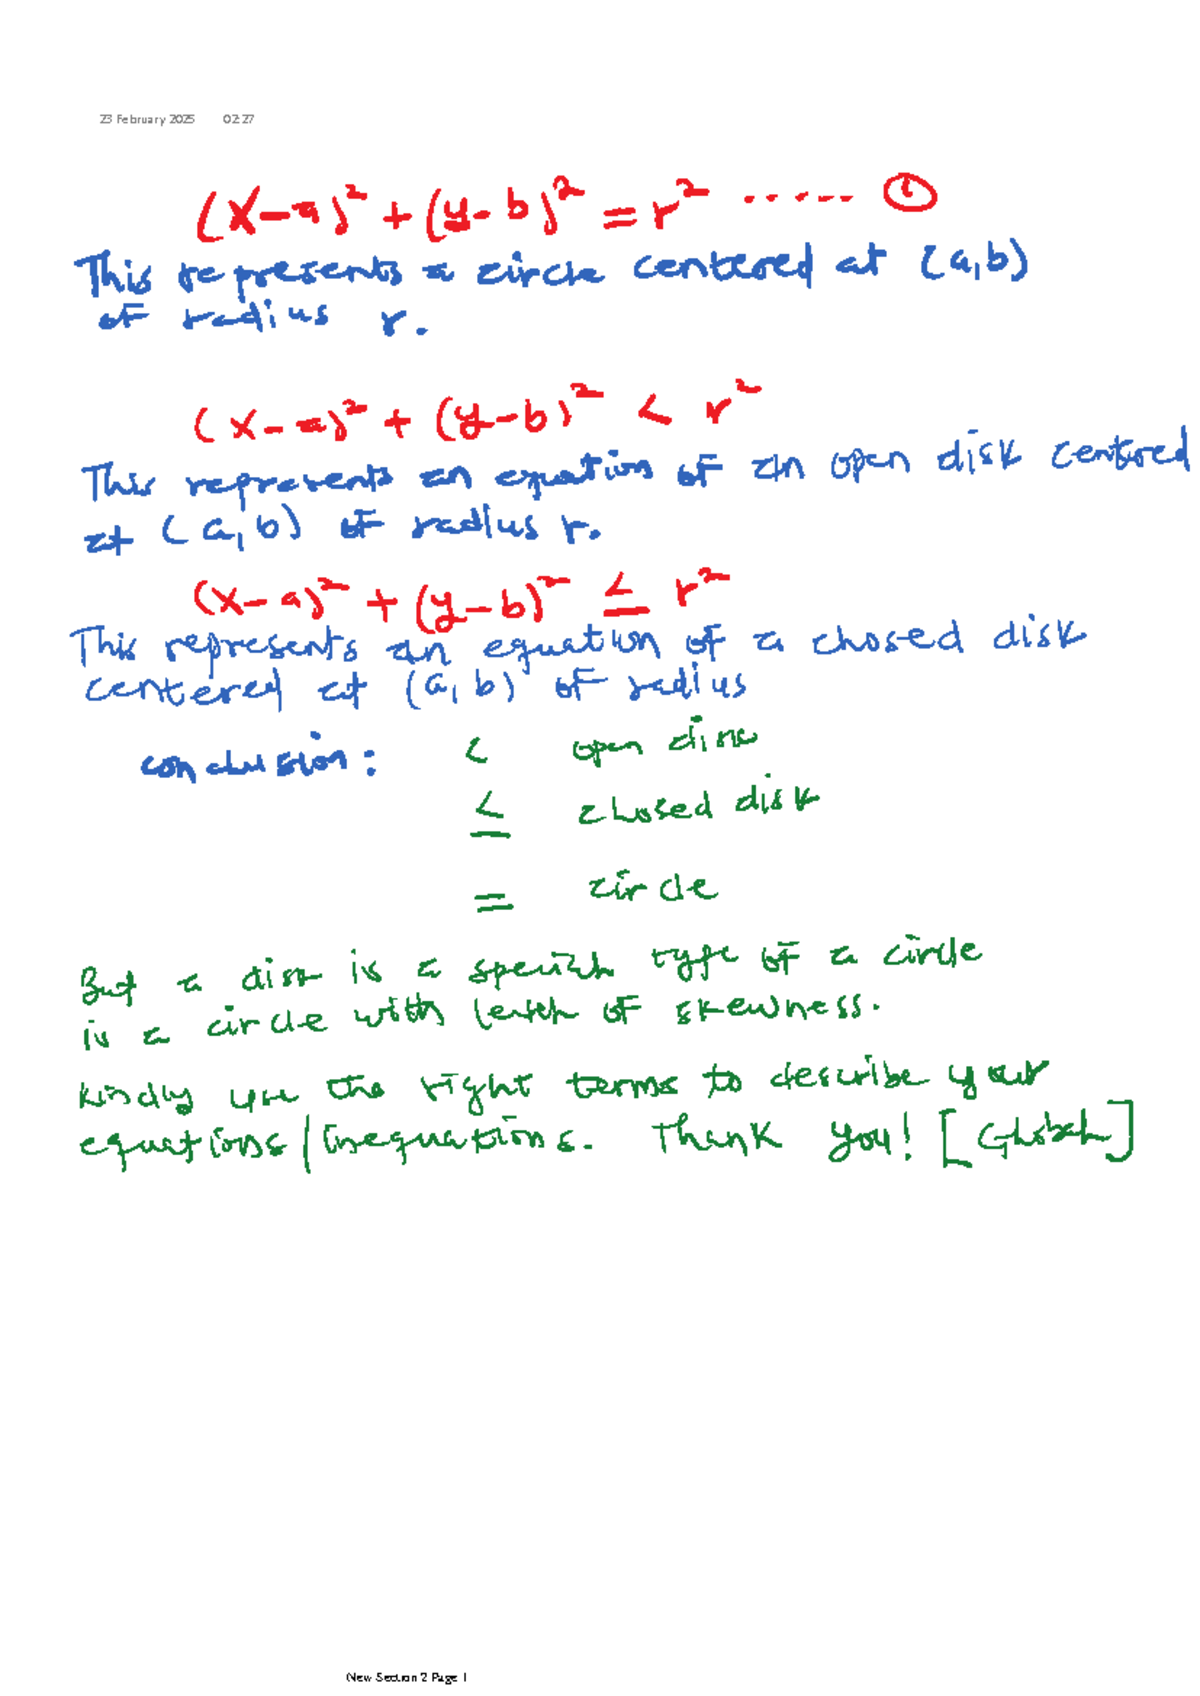 23 February 2025 02:27
(x-a)² + (y-b)² = r² ...... ①
This represents a circle centered at (a,b)
of radius r.
(x-a)² + (y-b)² < r²
This represents an equation of an open disk centered
at (a,b) of radius r.
(x-a)² + (y-b)² ≤ r²
This represents an equation of a closed disk
centered at (a,b) of radius
conclusion: < open disk
≤ closed disk
= circle
But a disk is a special type of a circle
is a circle with of skewness.
Kindly use the right terms to describe your
equations/inequations. Thank you! [Global]
New Section 2 Page 1